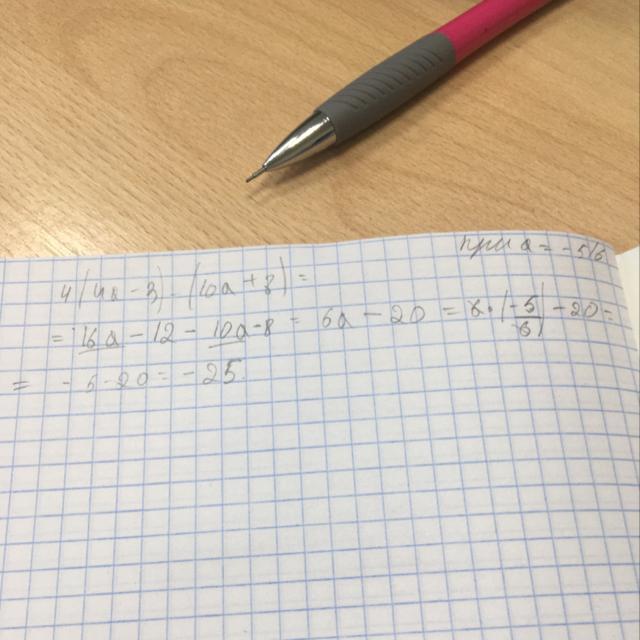 при a = -5/6
4(4a - 3) - (10a + 8) =
= 16a - 12 - 10a - 8 = 6a - 20 = 6 · (-5/6) - 20 =
= -5 - 20 = -25